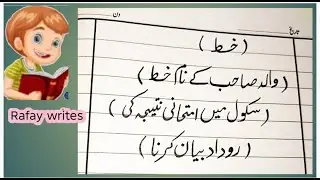 تاریخ دن
(خط)
(والد صاحب کے نام خط)
(سکول میں امتحانی نتیجہ کی)
روداد بیان کرنا)
Rafay writes